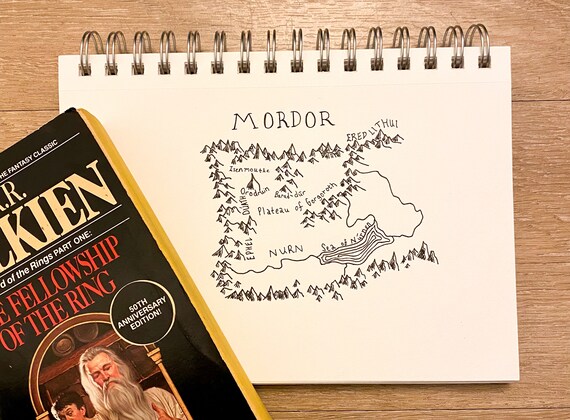 MORDOR
ERED LITHUI
Isenmouthe
Orodruin
Barad-dûr
EPHEL DÚATH
Plateau of Gorgoroth
NURN
Sea of Núrnen
THE FANTASY CLASSIC
R.
KIEN
of the Rings PART ONE:
FELLOWSHIP
OF THE RING
50TH
ANNIVERSARY
EDITION!